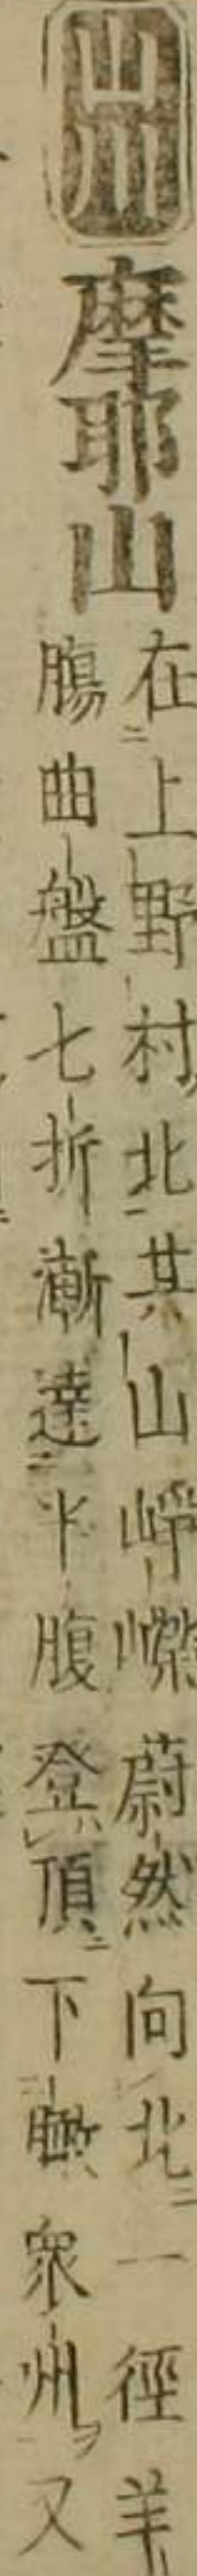 山川
摩耶山
在上野村北其山崢嶸蔚然向北一徑羊
腸曲盤七折漸達半腹登頂下瞰衆州又